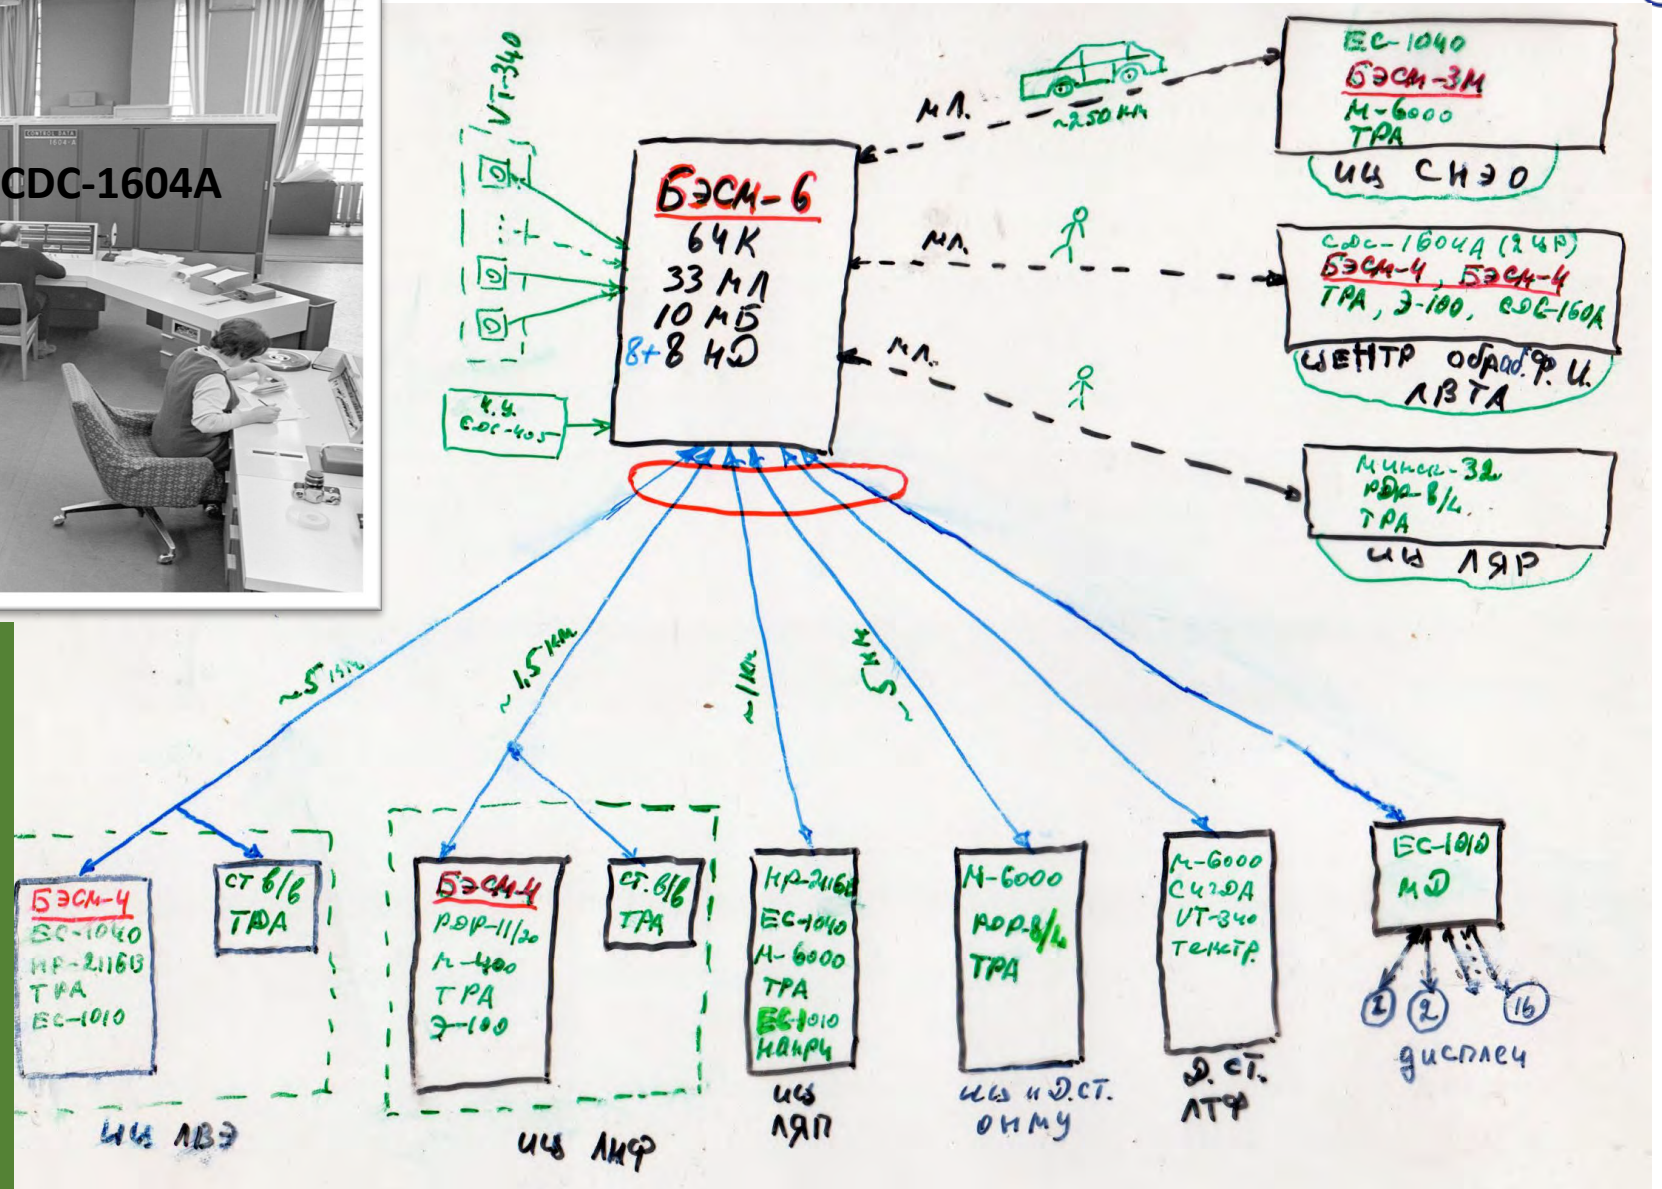 CONTROL DATA
1604-A
CDC-1604A
VT-340
БЭСМ-6
64К
33 МЛ
10 МБ
8+8 МД
СДС-405
МЛ.
~250 км
МЛ.
МЛ.
ЕС-1040
БЭСМ-3М
М-6000
ТРА
ИЦ СНЭО
СДС-1604А (2 ЦР)
БЭСМ-4, БЭСМ-4
ТРА, Э-100, СДС-160А
ЦЕНТР обраб. Ф. И.
ЛВТА
Минск-32
PDP-8/L
ТРА
ИЦ ЛЯР
~5 км
~1,5 км
~1 км
~5 км
БЭСМ-4
ЕС-1040
HP-2116B
ТРА
ЕС-1010
СТ в/в
ТРА
ИЦ ЛВЭ
БЭСМ-4
PDP-11/20
М-400
ТРА
Э-100
СТ. в/в
ТРА
ИЦ ЛНФ
HP-2116B
ЕС-1040
М-6000
ТРА
ЕС-1010
ИЦ
ЛЯП
М-6000
PDP-8/L
ТРА
ИЦ и Д.СТ.
ОНМУ
М-6000
VT-340
Д. СТ.
ЛТФ
ЕС-1010
МД
1
2
16
дисплеи